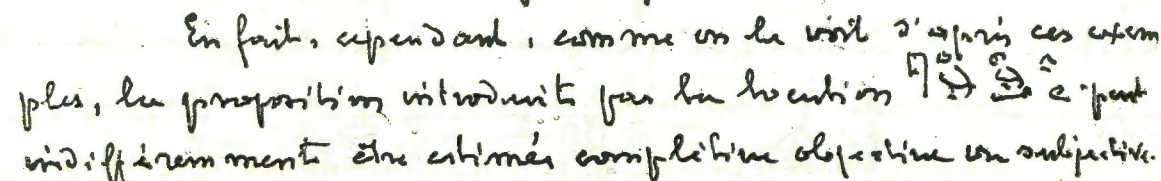 En fait, cependant, comme on le voit d'après ces exem
ples, la proposition introduite par la locution peut
indifféremment être estimée complétive objective ou subjective.